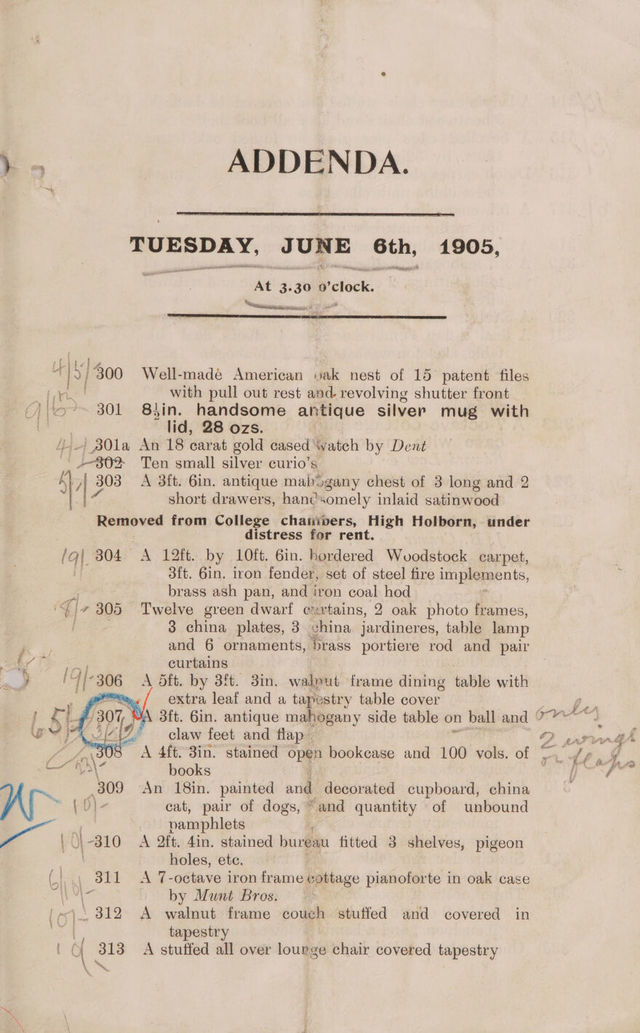 ADDENDA.
TUESDAY, JUNE 6th, 1905,
At 3.30 o'clock.
300 Well-made American oak nest of 15 patent files
with pull out rest and revolving shutter front
301 8½in. handsome antique silver mug with
lid, 28 ozs.
301a An 18 carat gold cased watch by Dent
302 Ten small silver curio's
303 A 3ft. 6in. antique mahogany chest of 3 long and 2
short drawers, handsomely inlaid satinwood
Removed from College chambers, High Holborn, under
distress for rent.
304 A 12ft. by 10ft. 6in. bordered Woodstock carpet,
3ft. 6in. iron fender, set of steel fire implements,
brass ash pan, and iron coal hod
305 Twelve green dwarf curtains, 2 oak photo frames,
3 china plates, 3 china jardineres, table lamp
and 6 ornaments, brass portiere rod and pair
curtains
306 A 5ft. by 3ft. 3in. walnut frame dining table with
extra leaf and a tapestry table cover
307 A 3ft. 6in. antique mahogany side table on ball and
claw feet and flap
only
2 wings
or flaps
308 A 4ft. 3in. stained open bookcase and 100 vols. of
books
309 An 18in. painted and decorated cupboard, china
cat, pair of dogs, and quantity of unbound
pamphlets
310 A 2ft. 4in. stained bureau fitted 3 shelves, pigeon
holes, etc.
311 A 7-octave iron frame cottage pianoforte in oak case
by Munt Bros.
312 A walnut frame couch stuffed and covered in
tapestry
313 A stuffed all over lounge chair covered tapestry